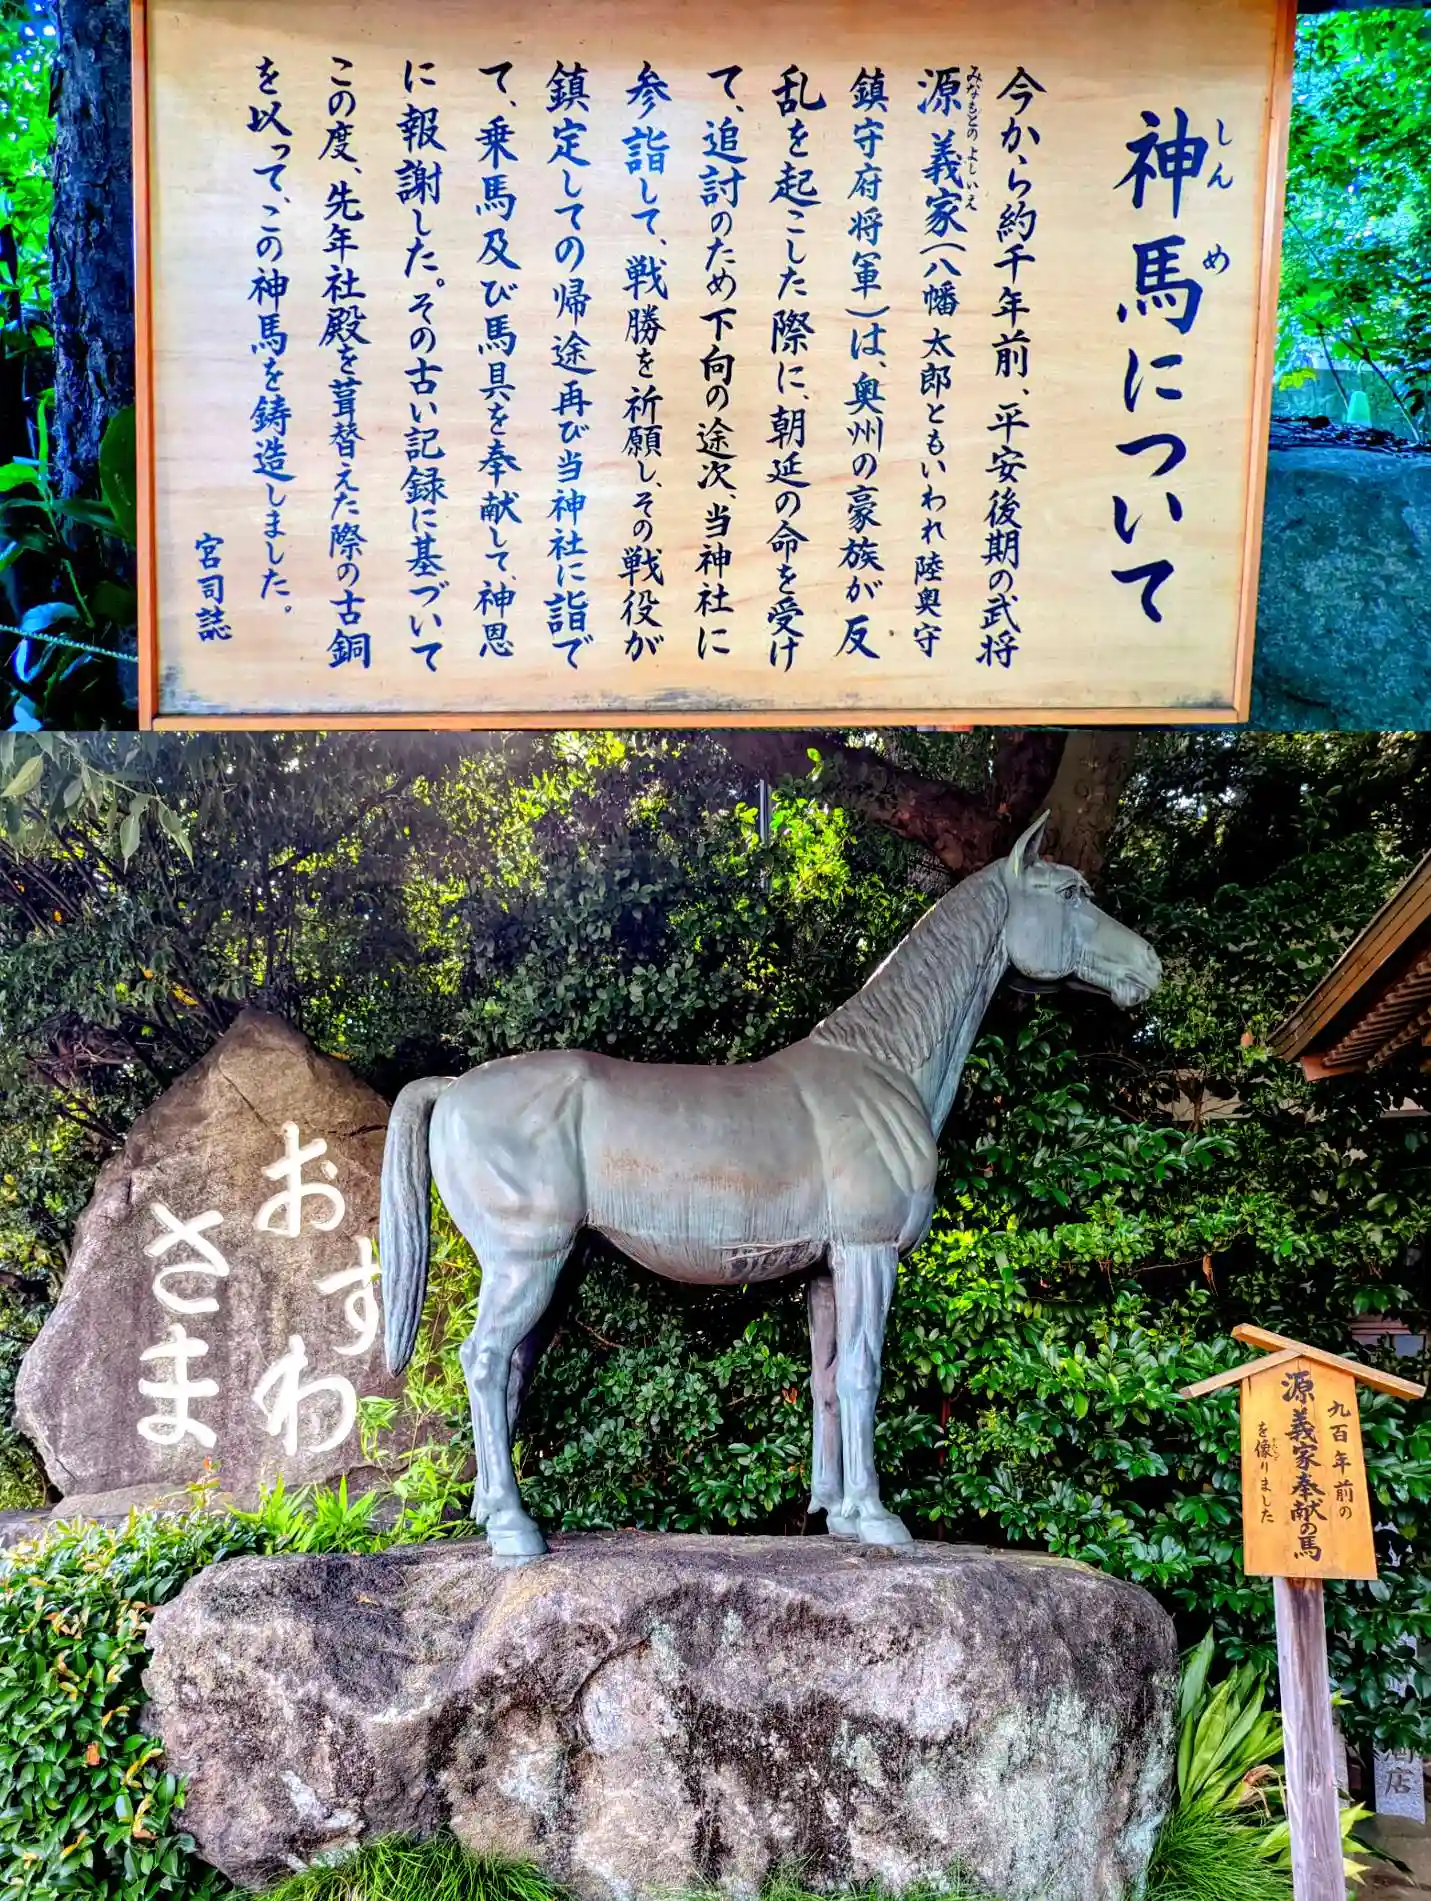 神馬について
しんめ
今から約千年前、平安後期の武将
源義家(八幡太郎ともいわれ陸奥守
みなもとのよしいえ
鎮守府将軍)は、奥州の豪族が反
乱を起こした際に、朝廷の命を受け
て、追討のため下向の途次、当神社に
参詣して、戦勝を祈願し、その戦役が
鎮定しての帰途再び当神社に詣で
て、乗馬及び馬具を奉献して、神恩
に報謝した。その古い記録に基づいて
この度、先年社殿を葺替えた際の古銅
を以って、この神馬を鋳造しました。
宮司誌
おすわ
さま
九百年前の
源義家奉献の馬
を像りました